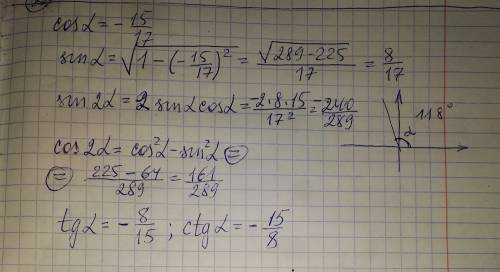 cosα = -15/17
sinα = √(1 - (-15/17)²) = √(289-225)/17 = 8/17
sin2α = 2 sinα cosα = -2·8·15/17² = -240/289
118°
α
cos2α = cos²α - sin²α =
= 225-64/289 = 161/289
tgα = -8/15 ; ctgα = -15/8